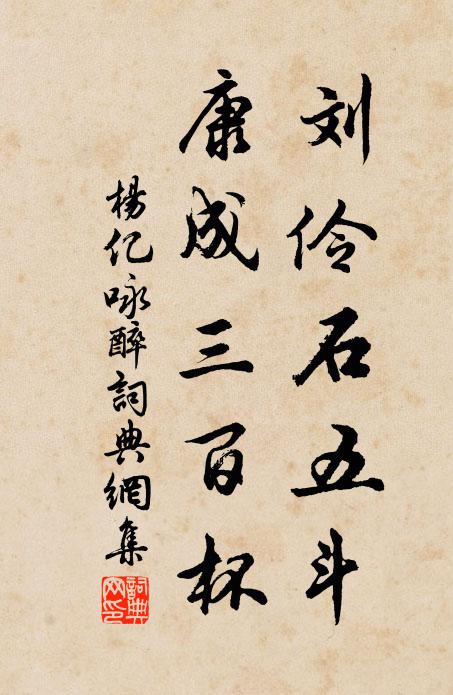 刘伶石五斗
康成三百杯
杨亿咏醉詞典網集
詞典網印